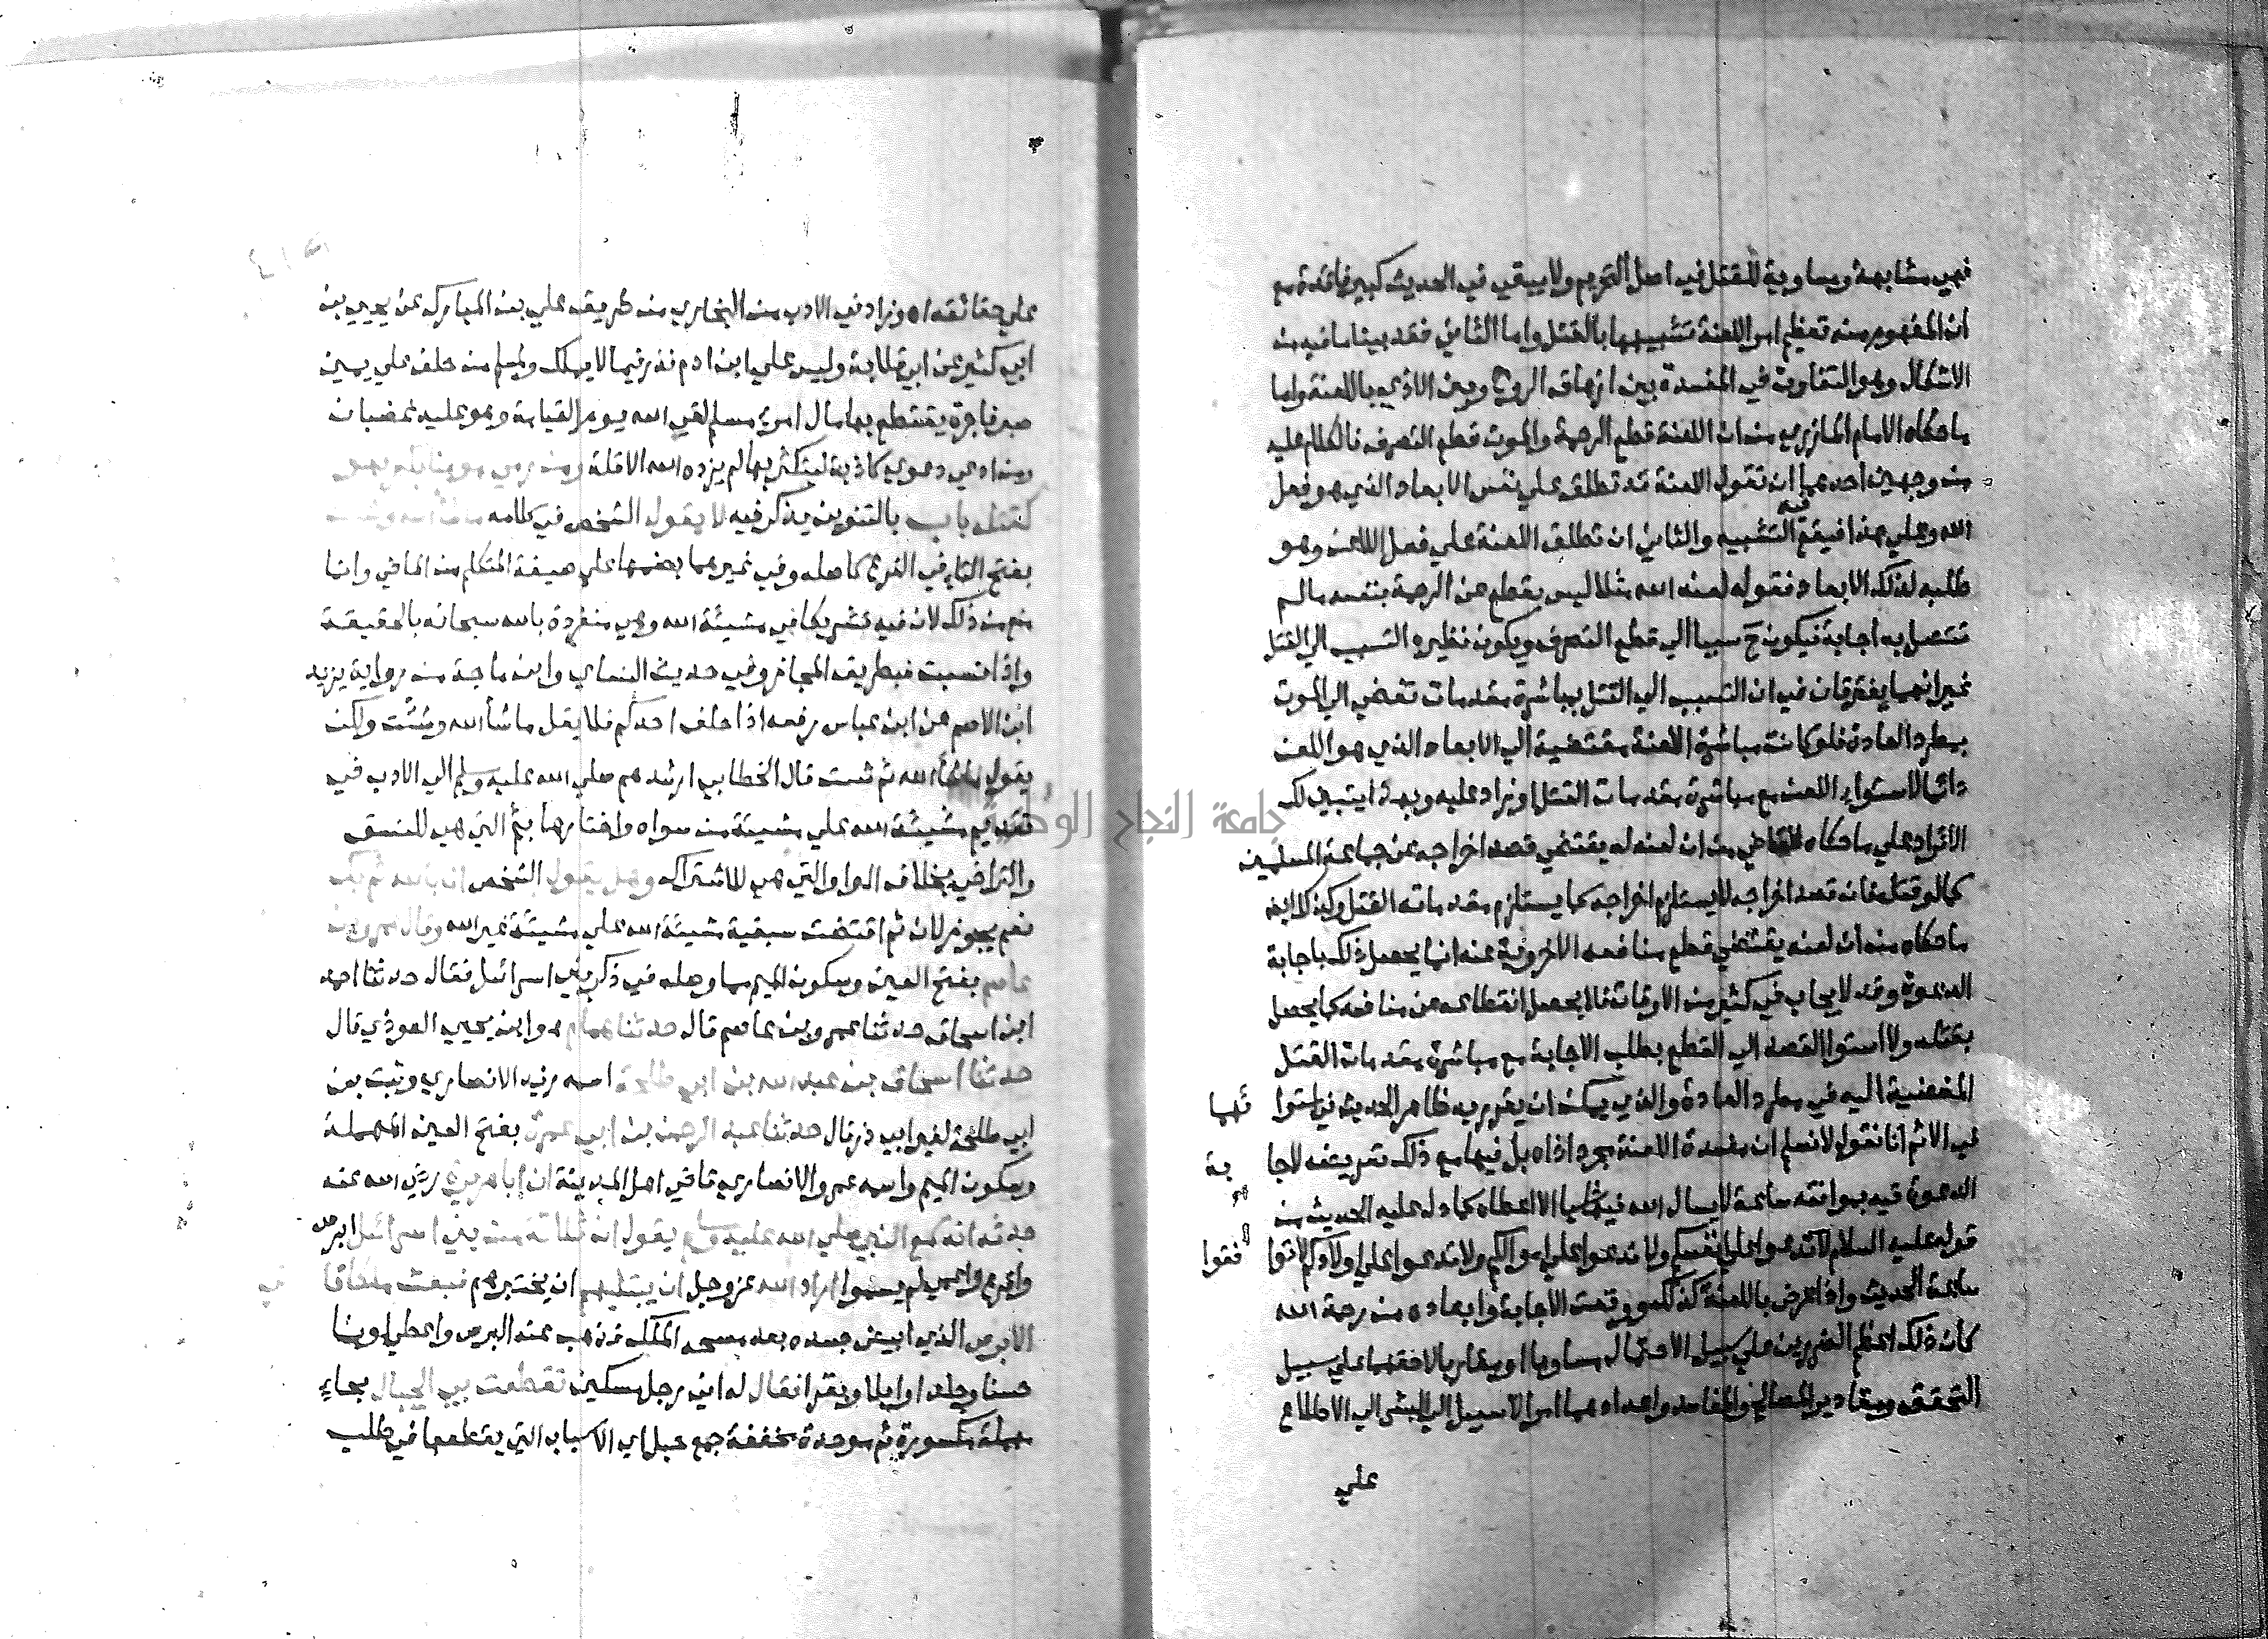 فهي مشابهة ومساوية للقتل في اصل التحريم ولا يبقي في الحديث كبير فائدة مع
ان المفهوم منه تعظيم امر اللعنة تشبيهها بالقتل واما الثاني فقد بينا ما فيه من
الاشكال وهو التفاوت في المفسدة بين ازهاق الروح وبين الاذي باللعنة واما
ما حكاه الامام المازري من ان اللعنة قطع الرحمة والموت قطع التصرف فالكلام عليه
من وجهين احدهما ان نقول اللعنة قد تطلق علي نفس الابعاد الذي هو فعل
الله وعلي هذا فيقع فيه التشبيه والثاني ان تطلق اللعنة علي فعل اللاعن وهو
طلبه لذلك الابعاد فقوله لعنه الله مثلا ليس بقطع عن الرحمة بنفسه ما لم
تتصل به اجابة فيكون ح سببا الي قطع التصرف ويكون نظيره التسبب الي القتل
غير انهما يفترقان في ان التسبب الي القتل بمباشرة مقدمات تفضي الي الموت
بمطرد العادة فلو كانت مباشرة اللعنة مقتضية الي الابعاد الذي هو اللعن
دائما لاستواء اللعن مع مباشرة مقدمات القتل او زاد عليه وبهذا يتبين لك
الايراد علي ما حكاه القاضي من ان لعنه له يقتضي قصد اخراجه عن جماعة المسلمين
كما لو قتله فان قصد اخراجه لا يستلزم اخراجه كما يستلزم مقدمات القتل وكذلك ايض
ما حكاه من ان لعنه يقتضي قطع منافعه الاخروية عنه انما يحصل ذلك باجابة
الدعوة وقد لا يجاب في كثير من الاوقات فلا يحصل انقطاعه عن منافعه كما يحصل
بقتله ولا استوا القصد الي القطع بطلب الاجابة مع مباشرة مقدمات القتل
المفضية اليه في مطرد العادة والذي يمكن ان يقرر به ظاهر الحديث في استوا ئهما
في الاثم انا نقول لا نسلم ان مفسدة اللعنة مجرد اذاه بل فيها مع ذلك تعريضه لاجا بة
الدعوة فيه بموافقة ساعة لا يسال الله فيها شيا الا اعطاه كما دل عليه الحديث من
قوله عليه السلام لا تدعوا علي انفسكم ولا تدعوا علي اموالكم ولا تدعوا علي اولادكم لا توا فقوا
ساعة الحديث واذا عرض باللعنة لذلك ووقعت الاجابة وابعاده من رحمة الله
كان ذلك اعظم الضررين علي سبيل الاحتمال مساويا او مقاربا لاخفهما علي سبيل
التحقق ومقادير المصالح والمفاسد واعدادهما امر لا سبيل الي البشر الي الاطلاع
علي
علي حقائقه اه وزاد في الادب من البخاري من طريق علي بن المبارك عن يحيي بن
ابي كثير عن ابي قلابة وليس علي ابن ادم نذر فيما لا يملك ولمسلم من حلف علي يمين
صبر فاجرة يقتطع بها مال امرئ مسلم لقي الله يوم القيامة وهو عليه غضبان
ومن ادعي دعوي كاذبة ليتكثر بها لم يزده الله الا قلة
باب بالتنوين يذكر فيه لا يقول الشخص في كلامه ما شا الله وشئت
بفتح التاء في الفرع كاصله وفي غيرهما بضمها علي صيغة المتكلم من الماضي وانما
منع من ذلك لان فيه تشريكا في مشيئة الله وهي منفردة بالله سبحانه بالحقيقة
واذا نسبت فبطريق المجاز وفي حديث النساي وابن ماجة من رواية يزيد
ابن الاصم عن ابن عباس رفعه اذا حلف احدكم فلا يقل ماشأ الله وشئت ولكن
يقول ماشأ الله ثم شئت قال الخطابي ارشدهم صلي الله عليه وسلم الي الادب في
تقديم مشيئة الله علي مشيئة من سواه واختارها بثم التي هي للنسق
والتراخي بخلاف الواو التي هي للاشتراك وهل يقول الشخص انا بالله ثم بك
نعم يجوز لان ثم اقتضت سبقية مشيئة الله علي مشيئة غير الله وقال عمرو بن
عاصم بفتح العين وسكون الميم مما وصله في ذكر بني اسرائيل فقال حدثنا احمد
ابن اسحاق حدثنا عمرو بن عاصم قال حدثنا همام هو ابن يحيي العوذي قال
حدثنا اسحاق بن عبد الله بن ابي طلحة اسمه زيد الانصاري وثبت بن
ابي طلحة لغير ابي ذر قال حدثنا عبد الرحمن بن ابي عمرة بفتح العين المهملة
وسكون الميم واسمه عمرو الانصاري قاضي اهل المدينة ان ابا هريرة رضي الله عنه
حدثه انه سمع النبي صلي الله عليه وسلم يقول ان ثلاثة من بني اسرائيل ابرص
واقرع واعمي لم يسموا اراد الله عز وجل ان يبتليهم ان يختبرهم فبعث ملكا
الابرص الذي ابيض جسده بعد مسحه الملك فذهب عنه البرص واعطي لونا
حسنا وجلدا وابلا وبقرا فقال له اني رجل مسكين تقطعت بي الحبال بحاء
مهملة مكسورة ثم موحدة مخففة جمع حبل اي الاسباب التي يقطعها في طلب
جامعة النجاح الوطنية